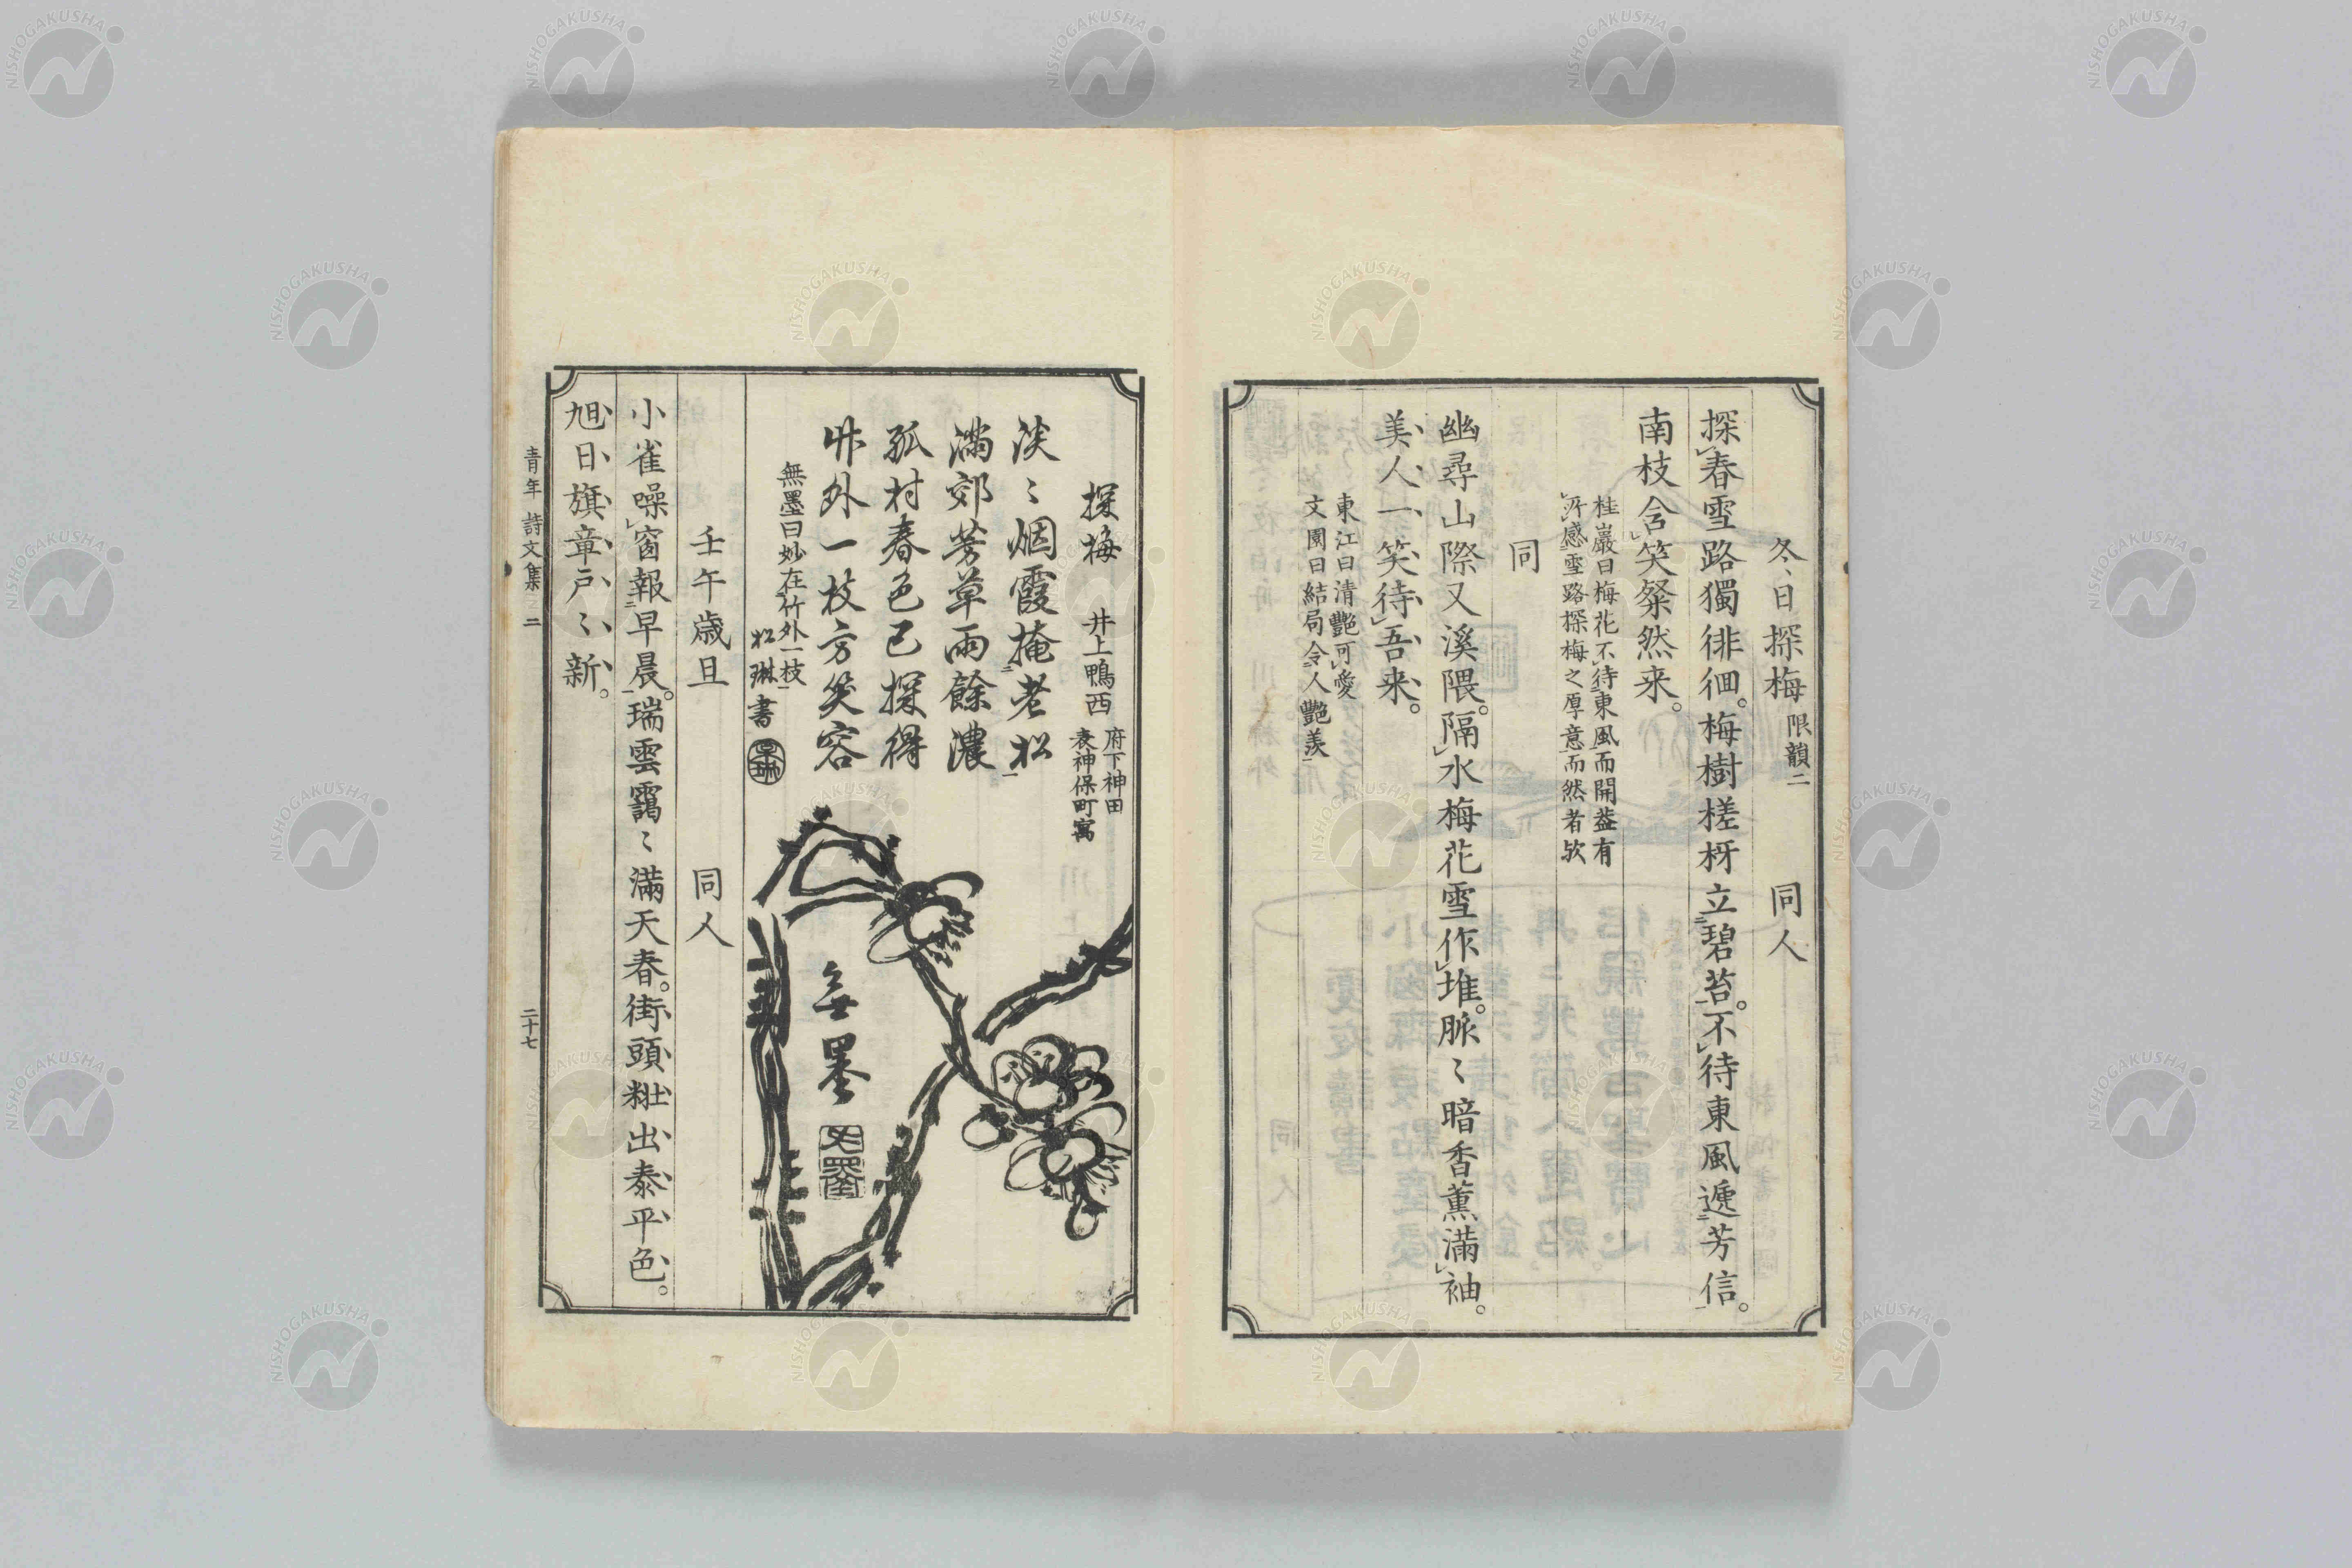 冬日探梅 限韻二 同人
探春雪路獨徘徊。梅樹槎枒立碧苔。不待東風遞芳信。
南枝含笑粲然来。
桂巖曰梅花不待東風而開益有
所感雪路探梅之厚意而然者欤
同
幽尋山際又溪隈。隔水梅花雪作堆。脈〻暗香薫滿袖。
美人一笑待吾来。
東江曰清艶可愛
文園曰結局令人艶羨
探梅 井上鴨西 府下神田
表神保町寓
淡〻烟霞掩老松
滿郊芳草雨餘濃
孤村春色已探得
竹外一枝方笑容
無墨曰妙在竹外一枝
松琳書
無墨
壬午歳旦 同人
小雀噪窗報早晨。瑞雲靄〻滿天春。街頭粧出泰平色。
旭日旗章戸〻新。
青年詩文集 之二 二十七
NISHOGAKUSHA